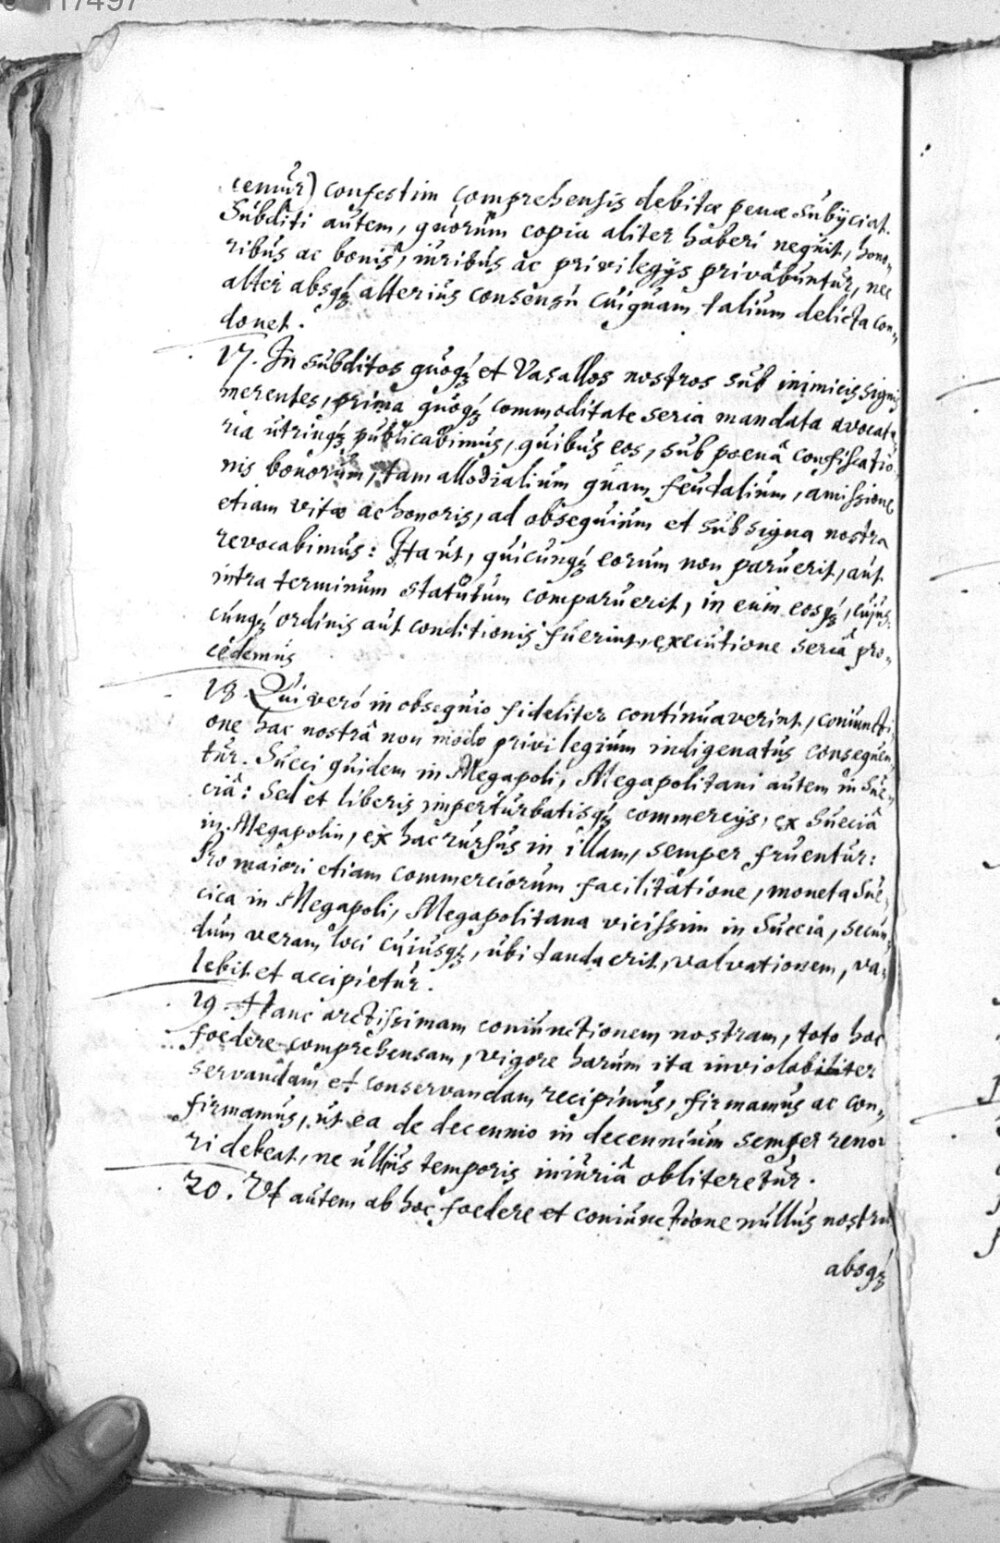 117497
cemur) confestim comprehensis debitæ penæ subÿciat.
Subditi autem, quorum copia aliter haberi nequit, hono-
ribus ac bonis, iuribus ac privilegÿs privabuntur, nec
alter absqꝫ alterius consensu cuiquam talium delicta con-
donet.
17. In subditos quoqꝫ et Vasallos nostros sub inimicis signis
merentes, prima quoqꝫ commoditate seria mandata avocato-
ria utrinqꝫ publicabimus, quibus eos, sub poenâ confiscatio-
nis bonorum, tam allodialium quam feudalium, amissione
etiam vitæ ac honoris, ad obsequium et sub signa nostra
revocabimus: Ita ut, quicunqꝫ eorum non paruerit, aut
intra terminum statutum comparuerit, in eum eosqꝫ, cujus-
cunqꝫ ordinis aut conditionis fuerint, executione seriâ pro-
cedemus
18. Qui veró in obsequio fideliter continuaverint, coniuncti-
one hac nostrâ non modo privilegium indigenatus consequen-
tur. Sueci quidem in Megapoli, Megapolitani autem in Sue-
ciâ: Sed et liberis imperturbatisqꝫ commercÿs, ex Sueciâ
in Megapolin, ex hac rursus in illam, semper fruentur:
Pro maiori etiam commerciorum facilitatione, moneta Sue-
cica in Megapoli, Megapolitana vicissim in Suecia, secun-
dum veram loci cuiusqꝫ, ubi danda erit, valvationem, va-
lebit et accipietur.
19. Hanc arctissimam coniunctionem nostram, toto hoc
foedere comprehensam, vigore harum ita inviolabiliter
servandam et conservandam recipimus, firmamus ac con-
firmamus, ut ea de decennio in decennium semper reno-
ri debeat, ne ullius temporis iniuriâ obliteretur.
20. Ut autem ab hoc foedere et coniunctione nullus nostrum
absqꝫ